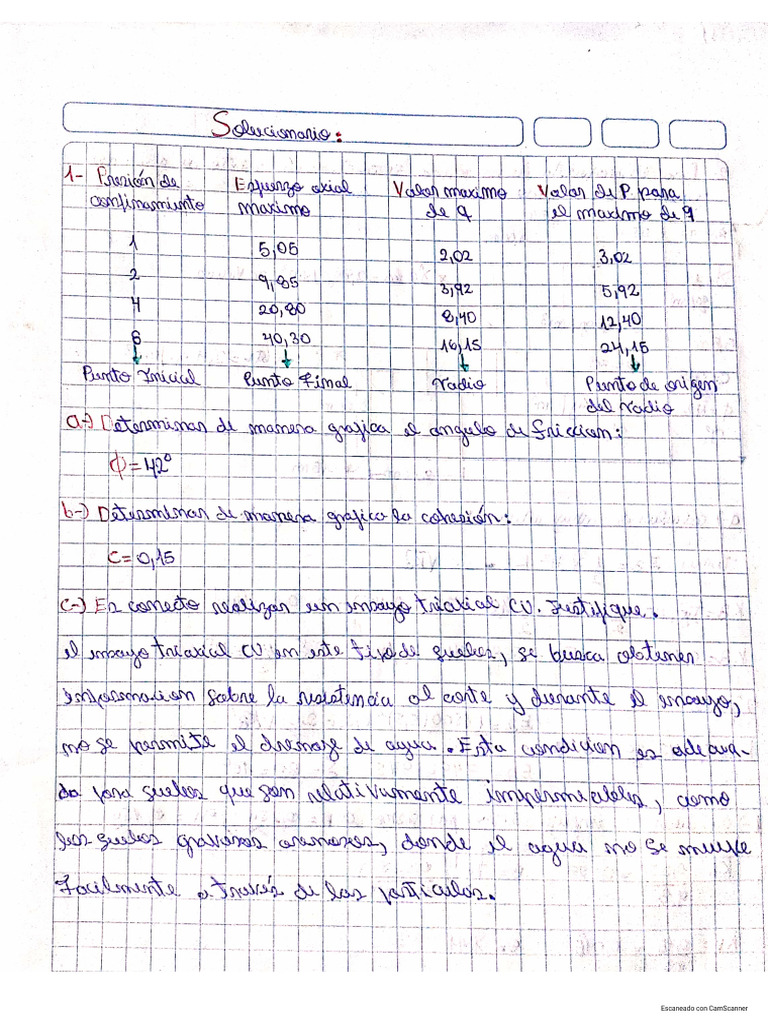 Solucionario:
1- Presión de confinamiento Esfuerzo axial maximo Valor maximo de q Valor de P para el maximo de q
1 5,05 2,02 3,02
2 9,85 3,92 5,92
4 20,80 8,40 12,40
6 40,30 16,15 24,15
Punto Inicial Punto Final Radio Punto de origen del radio
a-) Determinar de manera grafica el angulo de friccion:
ϕ = 42°
b-) Determinar de manera grafica la cohesión:
C = 0,15
c-) Es correcto realizar un ensayo triaxial CU. Justifique.
el ensayo triaxial CU en este tipo de suelos, se busca obtener
informacion sobre la resistencia al corte y durante el ensayo,
no se permite el drenaje de agua. Esta condicion es adecua-
da para suelos que son relativamente impermeables, como
los suelos gravosos arenosos, donde el agua no se mueve
facilmente a través de las particulas.
Escaneado con CamScanner